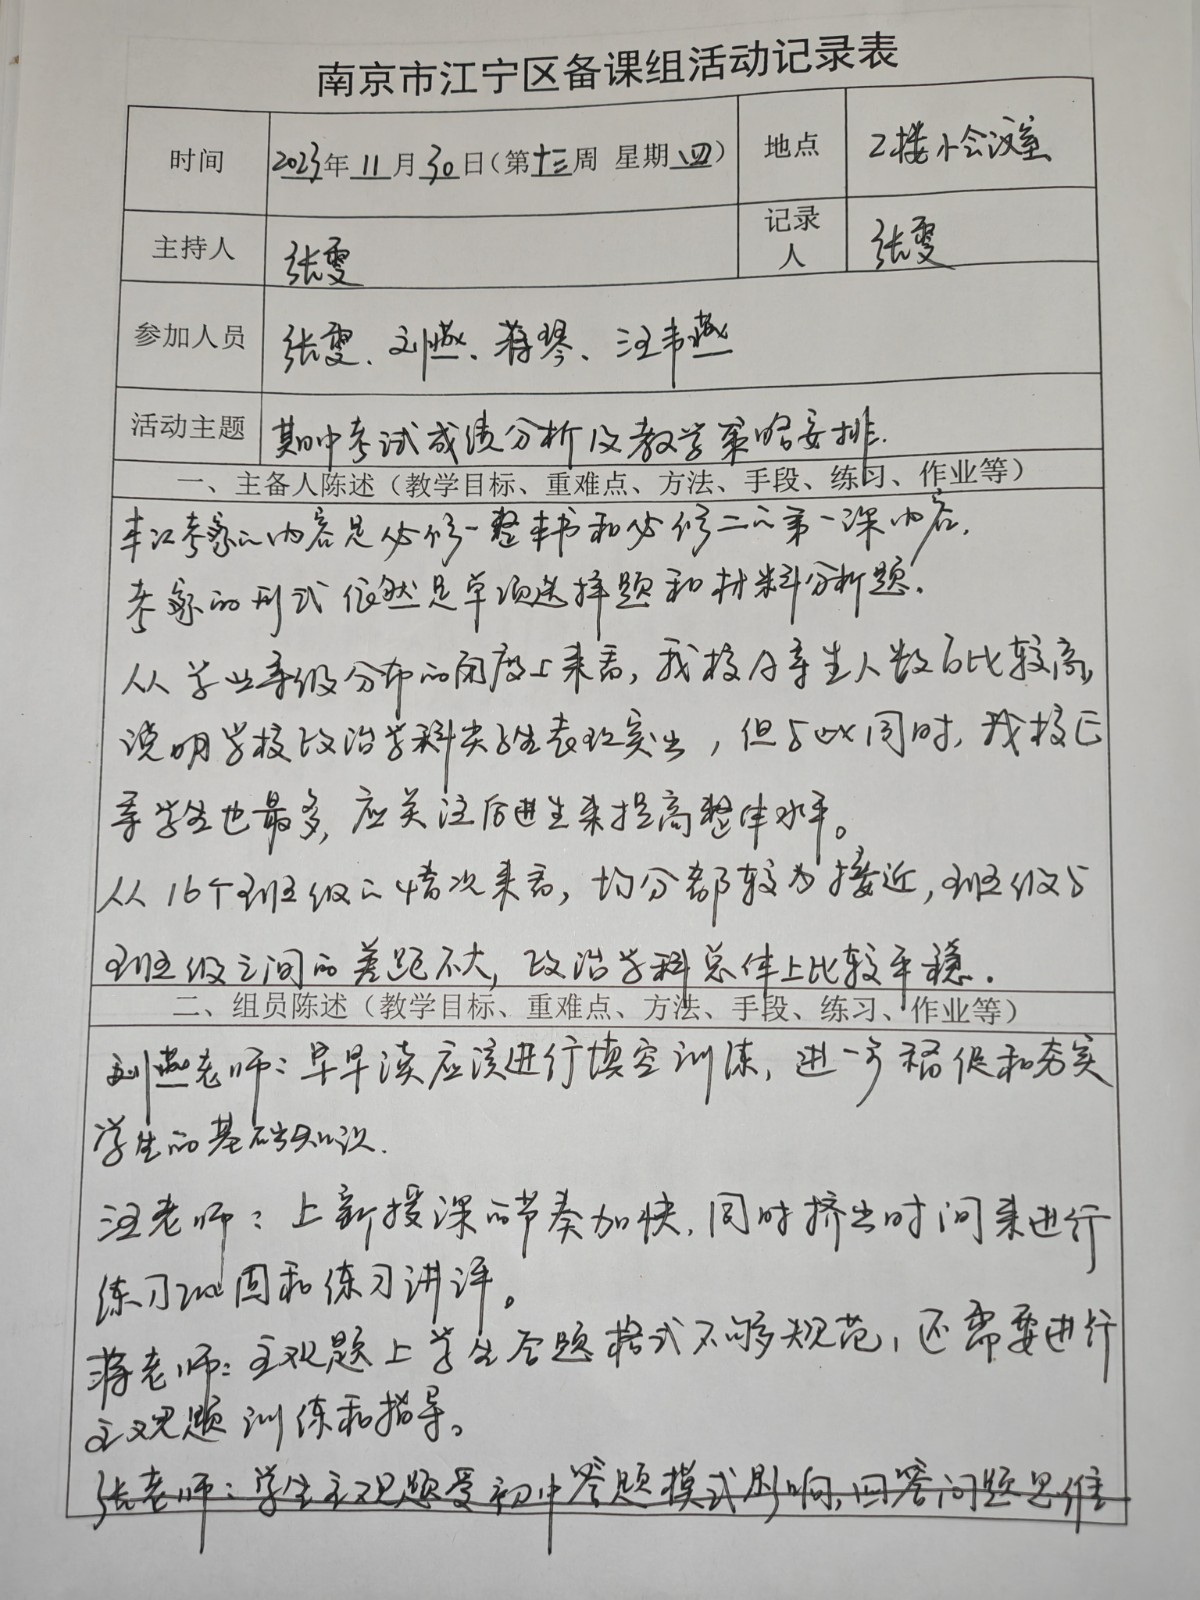 南京市江宁区备课组活动记录表
时间 2023年11月30日(第十三周 星期四) 地点 2楼小会议室
主持人 张雯 记录人 张雯
参加人员 张雯、刘燕、蒋琴、汪韦燕
活动主题 期中考试成绩分析及教学策略安排.
一、主备人陈述（教学目标、重难点、方法、手段、练习、作业等）
本次考察的内容是必修一整本书和必修二的第一课内容.
考察的形式依然是单项选择题和材料分析题.
从学业等级分布的角度上来看,我校A等生人数占比较高,
说明学校政治学科尖子生表现突出,但与此同时,我校E
等学生也最多,应关注后进生来提高整体水平。
从16个班级的情况来看,均分都较为接近,班级与
班级之间的差距不大,政治学科总体上比较平稳.
二、组员陈述（教学目标、重难点、方法、手段、练习、作业等）
刘燕老师:早早读应该进行填空训练,进一步稳促和夯实
学生的基础知识.
汪老师:上新授课的节奏加快,同时挤出时间来进行
练习巩固和练习讲评。
蒋老师:主观题上学生答题格式不够规范,还需要进行
主观题训练和指导。
张老师:学生主观题受初中答题模式影响,回答问题思维